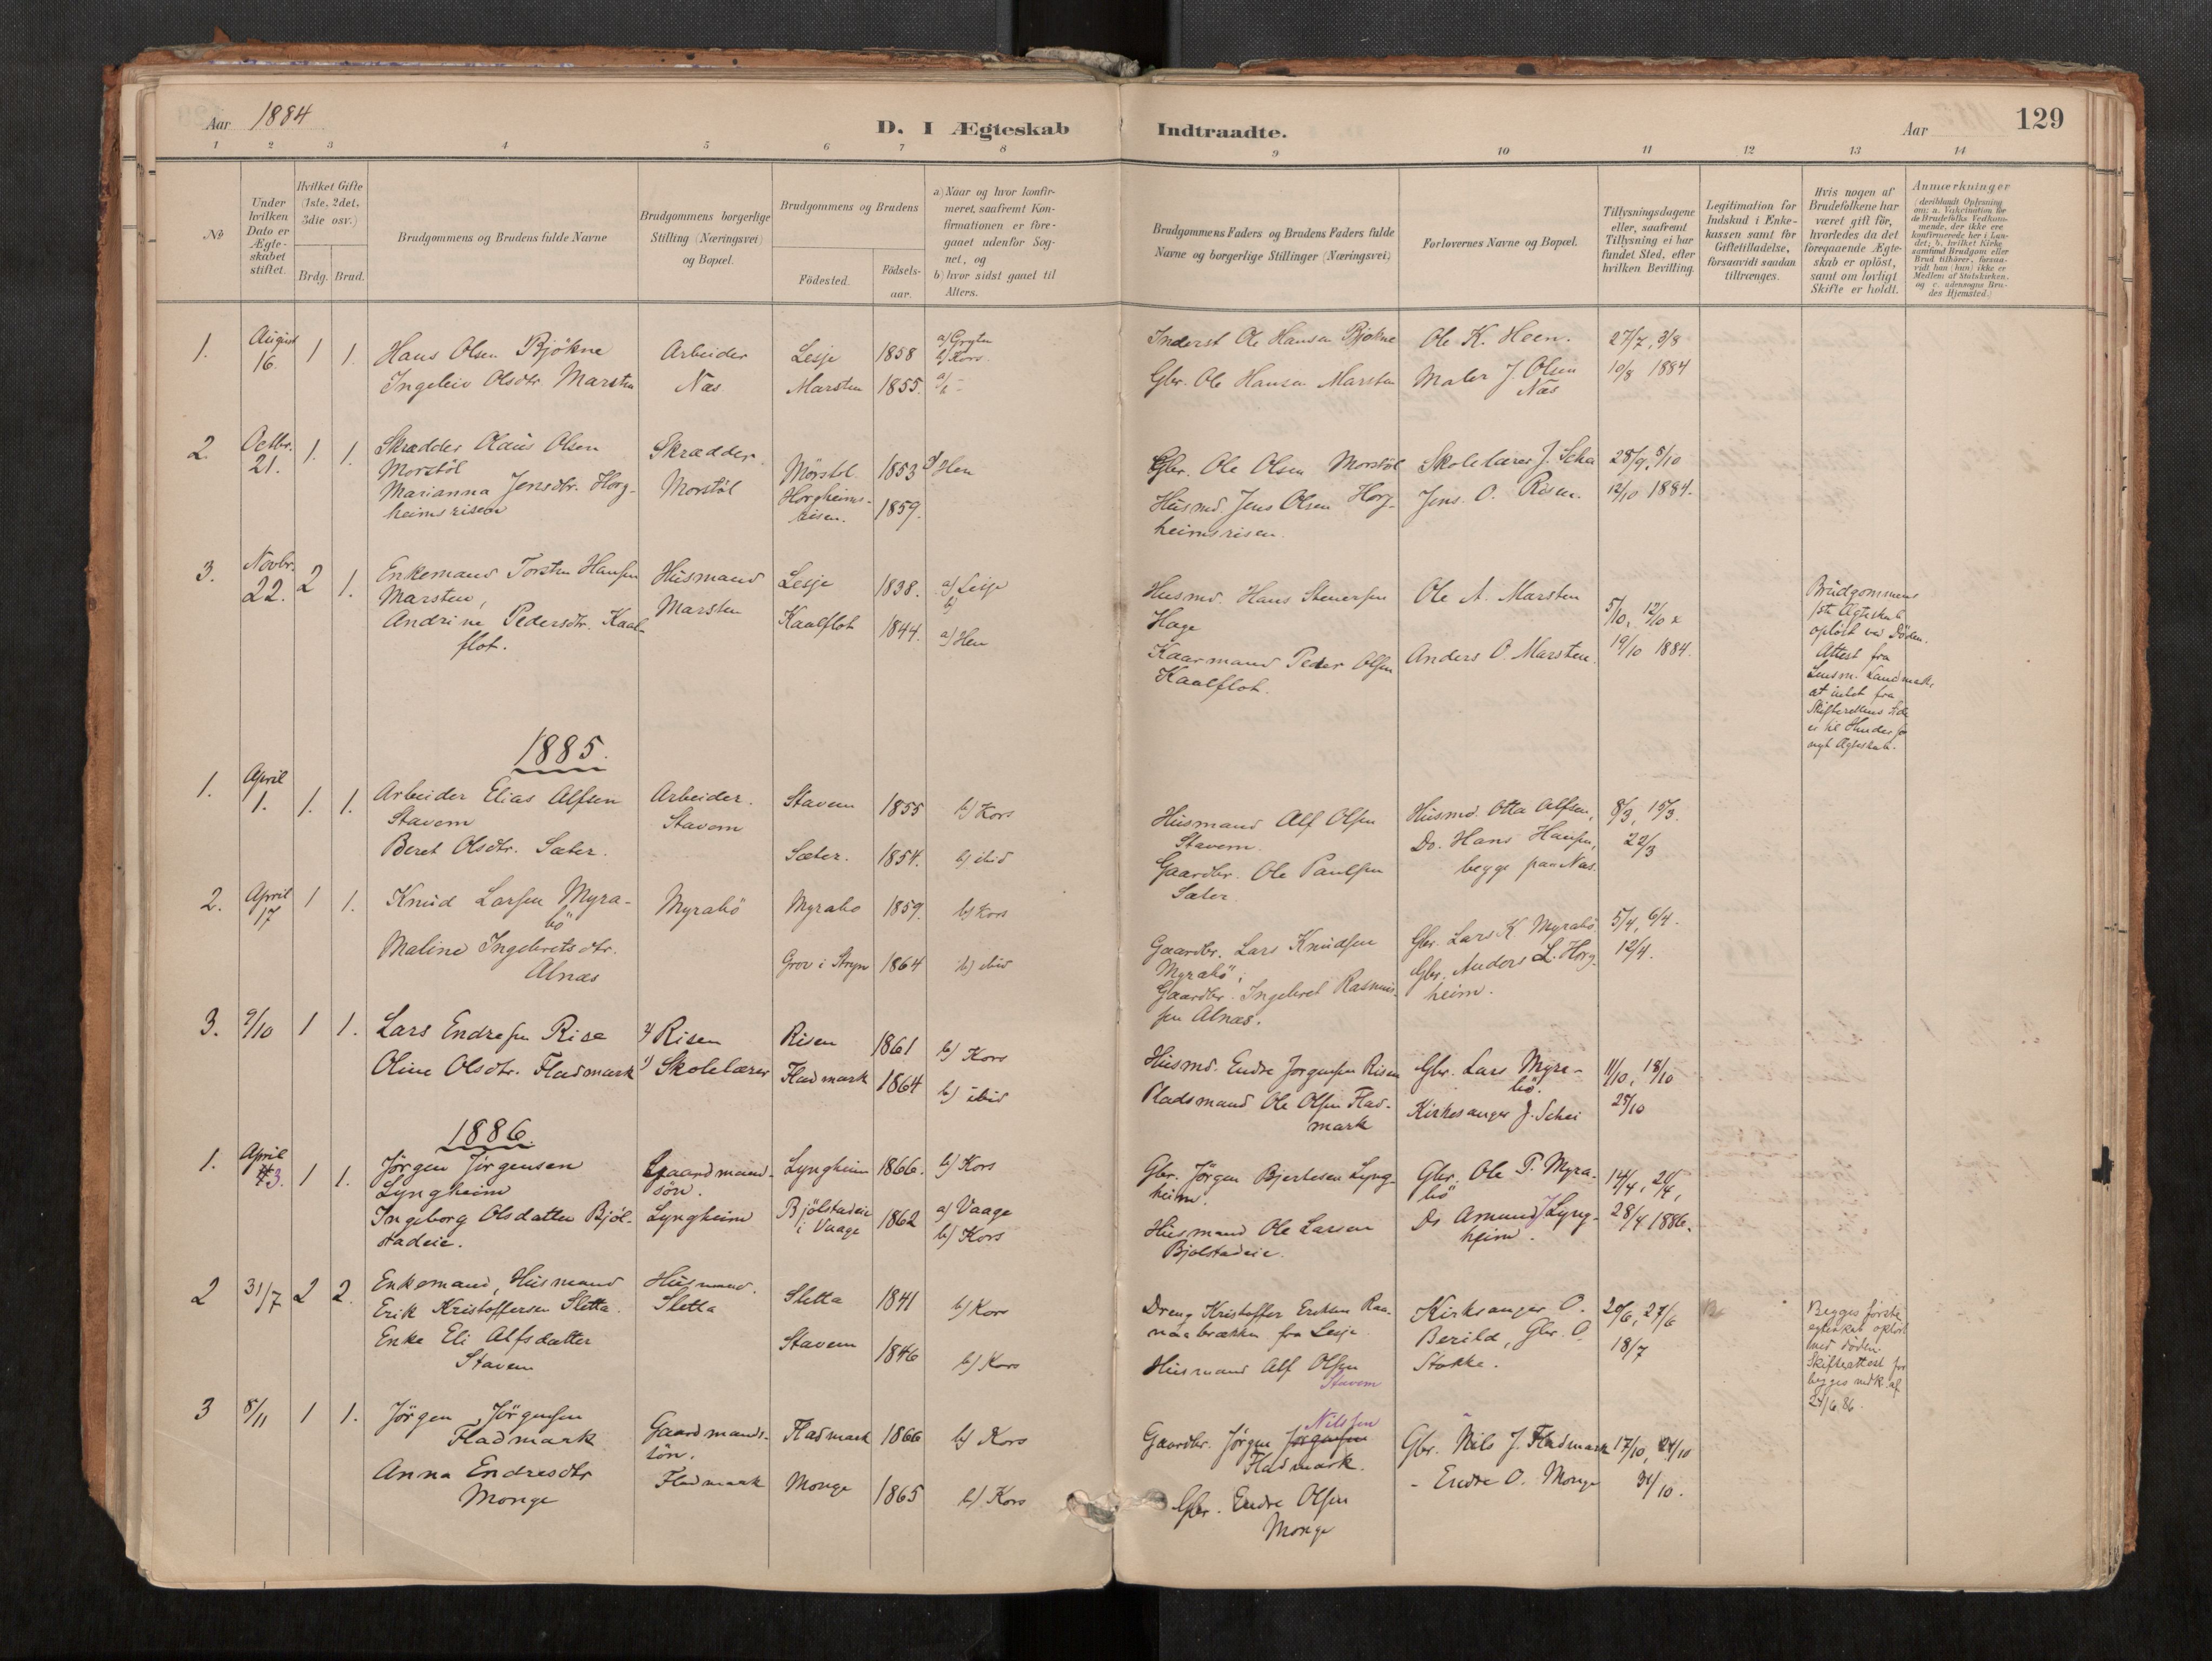 Aar 1884
D. I Ægteskab
Indtraadte.
Aar
129
1 2 3 4 5 6 7 8 9 10 11 12 13 14
No
Under hvilken Dato er Ægteskabet stiftet.
Hvilket Gifte (1ste, 2det, 3die osv.)
Brdg. Brud.
Brudgommens og Brudens fulde Navne
Brudgommens borgerlige Stilling (Næringsvei) og Bopæl.
Brudgommens og Brudens
Födested.
Födsels-aar.
a) Naar og hvor konfirmeret, saafremt Konfirmationen er foregaaet udenfor Sognet, og
b) hvor sidst gaaet til Alters.
Brudgommens Faders og Brudens Faders fulde Navne og borgerlige Stillinger (Næringsvei)
Forlovernes Navne og Bopæl.
Tillysningsdagene eller, saafremt Tillysning ei har fundet Sted, efter hvilken Bevilling.
Legitimation for Indskud i Enkekassen samt for Giftetilladelse, forsaavidt saadan tiltrænges.
Hvis nogen af Brudefolkene har været gift för, hvorledes da det foregaaende Ægteskab er oplöst, samt om lovligt Skifte er holdt.
Anmærkninger
(deriblandt Oplysning om: a. Vakcination for de Brudefolks Vedkommende, der ikke ere konfirmerede her i Landet; b. hvilket Kirkesamfund Brudgom eller Brud tilhörer, forsaavidt han (hun) ikke er Medlem af Statskirken, og c. udensogns Brudes Hjemsted.)
1. August 16. 1 1. Hans Olsen Bjökne Arbeider Lesje 1858 a) Gryten b) Kors. Inderst Ole Hansen Bjøkne Ole K. Heen. 27/7, 3/8
Ingeleiv Olsdtr. Marsten Næs Marsten 1855. Gbr. Ole Hansen Marsten Maler J. Olsen Næs 10/8 1884
2. Octbr. 21. 1. 1. Skrædder Olaus Olsen Morstöl Skrædder Morstöl Mörstöl 1853 Hen Gbr. Ole Olsen Morstöl Skolelærer J. Schei 28/9, 5/10
Marianna Jensdtr. Horgheimsrisen Horgheimsrisen. 1859. Husmd. Jens Olsen Horgheimsrisen. Jens O. Risen. 12/10 1884.
3. Novbr. 22. 2 1. Enkemand Torsten Hansen Marsten, Husmand Marsten Lesje 1838. a) Lesje b) Husmd. Hans Stenersen Hage Ole A. Marsten 5/10, 12/10 &
Andrine Pedersdtr. Kaalflot. Kaalflot 1844. a) Hen Kaarmand Peder Olsen Kaalflot. Anders O. Marsten. 19/10 1884.
Brudgommens 1ste Ægteskab oplöst ved Döden. Attest fra Lensm. Landmark, at intet fra Skifterettens Side er til Hinder for nyt Ægteskab.
1885.
1. April 1. 1. 1. Arbeider Elias Alfsen Stavem Arbeider. Stavem Stavem 1855 b) Kors Husmand Alf Olsen Stavem. Husmd. Otta Alfsen, 8/3, 15/3.
Beret Olsdtr. Sæter. Sæter. 1854. b) ibid Gaardbr. Ole Paulsen Sæter Do. Hans Hansen, begge paa Næs. 22/3
2. April 17 1 1. Knud Larsen Myrabö Myrabö Myrabø 1859. b) Kors Gaardbr. Lars Knudsen Myrabö, Gbr. Lars K. Myrabö 5/4, 6/4.
Maline Ingebretsdtr. Alnæs Grov i Stryn 1864 b) ibid Gaardbr. Ingebret Rasmussen Alnæs. Gbr. Anders L. Horgheim. 12/4.
3. 9/10 1 1. Lars Endresen Rise 2) Risen Risen 1861 b) Kors Husmd. Endre Jørgensen Risen Gbr. Lars Myrebö. 11/10, 18/10
Oline Olsdtr. Fladmark 1) Skolelærer Fladmark 1864 b) ibid Pladsmand Ole Olsen Fladmark Kirkesanger J. Schei 25/10
1886.
1. April 3. 1 1. Jörgen Jörgensen Lyngheim Gaardmandsön. Lyngheim Lyngheim 1866. b) Kors Gbr. Jörgen Bjertesen Lyngheim. Gbr. Ole P. Myrabö 14/4, 21/4,
Ingeborg Olsdatter Bjölstadeie. Bjölstadeie i Vaage 1862 a) Vaage b) Kors Husmand Ole Larsen Bjølstadeie. Do Amund J Lyngheim. 28/4 1886.
2 31/7 2 2. Enkemand, Husmand Erik Kristoffersen Sletta. Husmand. Sletta Sletta 1841 b) Kors Dreng Kristoffer Eriksen Raanaabrækken fra Lesje Kirkesanger O. Berild, Gbr. O. Stokke. 20/6, 27/6
Enke Eli Alfsdatter Stavem Stavem 1846 b) Kors Husmand Alf Olsen Stavem 18/7
Begges förste egteskab oplöst ved döden. Skifteattest for begges vedk. af 24/6 86.
3 5/11 1 1. Jörgen Jörgensen Fladmark Gaardmandssön. Fladmark Fladmark 1866 b) Kors Gaardbr. Jörgen Jörgensen Nilssen Fladmark. Gbr. Nils J. Fladmark 17/10, 24/10
Anna Endresdtr Monge Monge 1865 b) Kors Gbr. Endre Olsen Monge - Endre O. Monge 31/10.